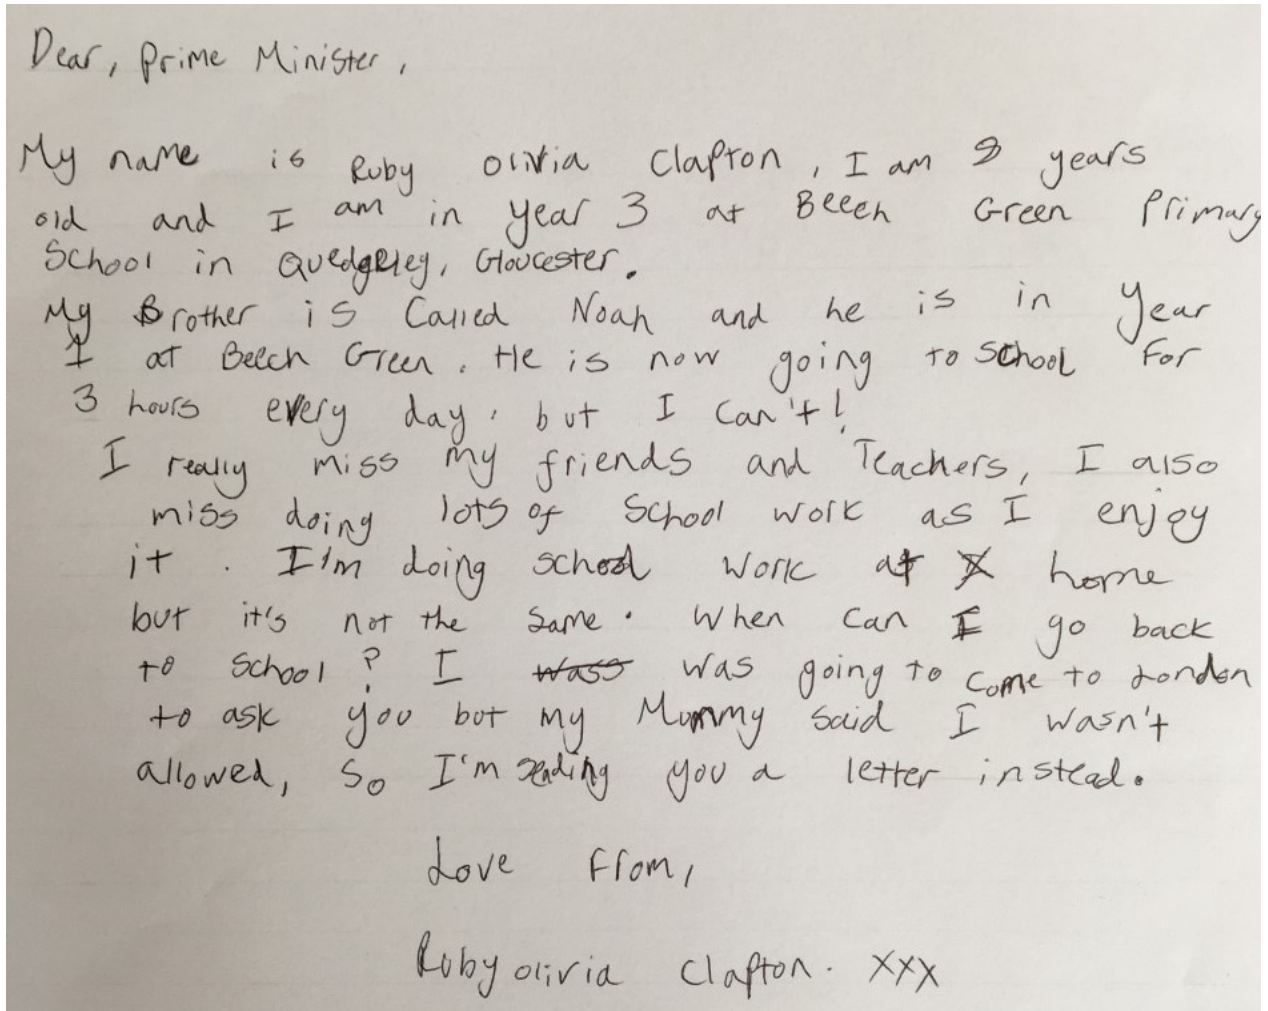 Dear, Prime Minister,
My name is Ruby Olivia Clapton, I am 8 years
old and I am in year 3 at Beech Green Primary
School in Quedgeley, Gloucester.
My Brother is Called Noah and he is in Year
1 at Beech Green. He is now going to School For
3 hours every day. but I can't!
I really miss my friends and Teachers, I also
miss doing lots of School work as I enjoy
it. I'm doing school work at home
but it's not the same. When can I go back
to School? I was going to come to London
to ask you but my Mummy said I wasn't
allowed, So I'm sending you a letter instead.
Love From,
Ruby Olivia Clapton. xxx